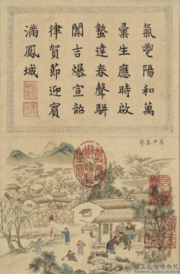 氣鬯陽和萬
彙生應時啟
蟄達春聲駢
闐吉爆宣韶
律賀節迎賓
滿鳳城